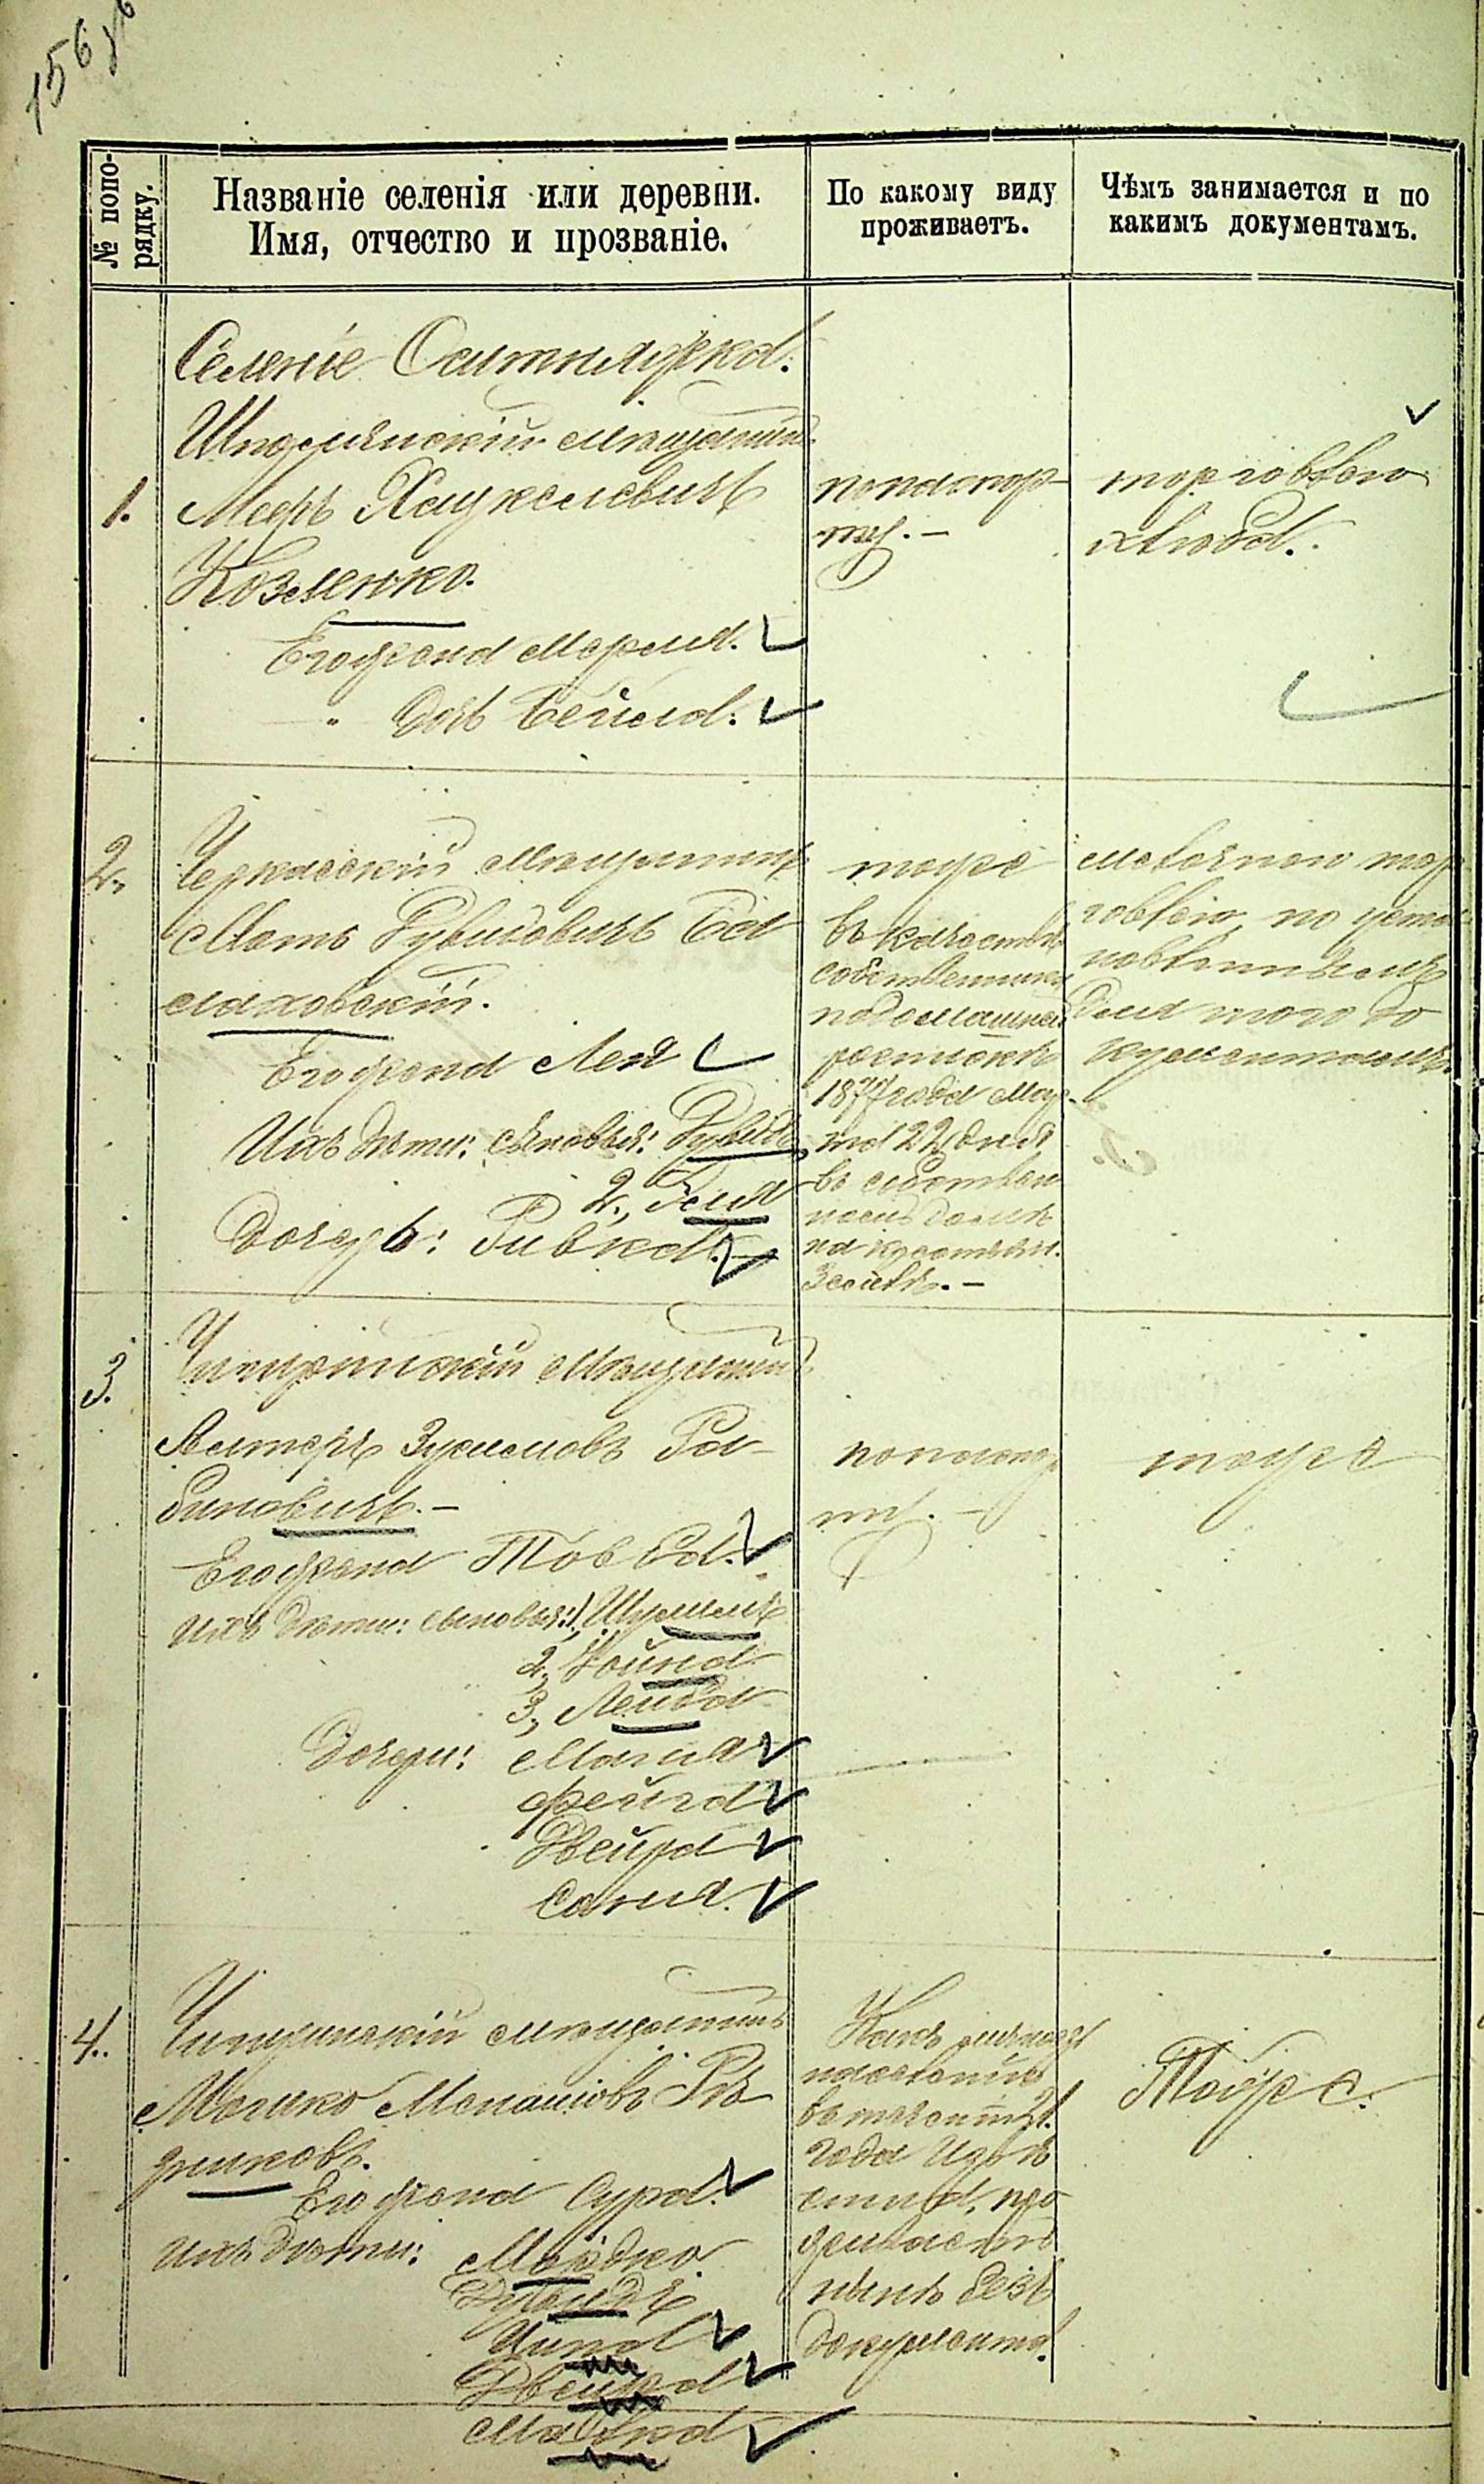 156
№ попо-
рядку.
Названіе селенія или деревни.
Имя, отчество и прозваніе.
По какому виду
проживаетъ.
Чѣмъ занимается и по
какимъ документамъ.
Селеніе Ситняжка.
Шполянскій мѣщанинъ
1. Мееръ Хацкелевичъ
Козленко.
Его жена Мерля.
" дочь Бейла.
по паспор-
ту. –
торговлею
хлѣба.
2. Черкасскій мѣщанинъ
Мотъ Рувиновичъ Ба
лаховскій.
Его жена Лея
Ихъ дѣти: сыновья: Рувинъ
2,
Дочерь: Ривка.
тоже
въ качествѣ
собственника
по домашней
роспискѣ
1877 года Мар-
та 22 дня
въ собствен
номъ домѣ
на крестьян.
землѣ. –
мелочною тор
говлею по уста
новленнымъ
для того до
кументамъ.
3. Чигиринскій мѣщанинъ
Алтеръ Зусмановъ Ра-
биновичъ. –
Его жена Тов ба.
ихъ дѣти: сыновья: 1, Шулимъ
2, Йойна
3, Лейба
Дочери: Маня
Фейга
Двейра
Соня.
по паспор
ту. –
тоже
4. Чигиринскій мѣщанинъ
Мошко Монашовъ Рѣз
никовъ.
Его жена Сура.
ихъ дѣти: Мордко
Дувидъ
Двейра
Малка
Какъ
въ текущ.
года изъ
про
живаетъ
нынѣ безъ
документа.
Тоже.